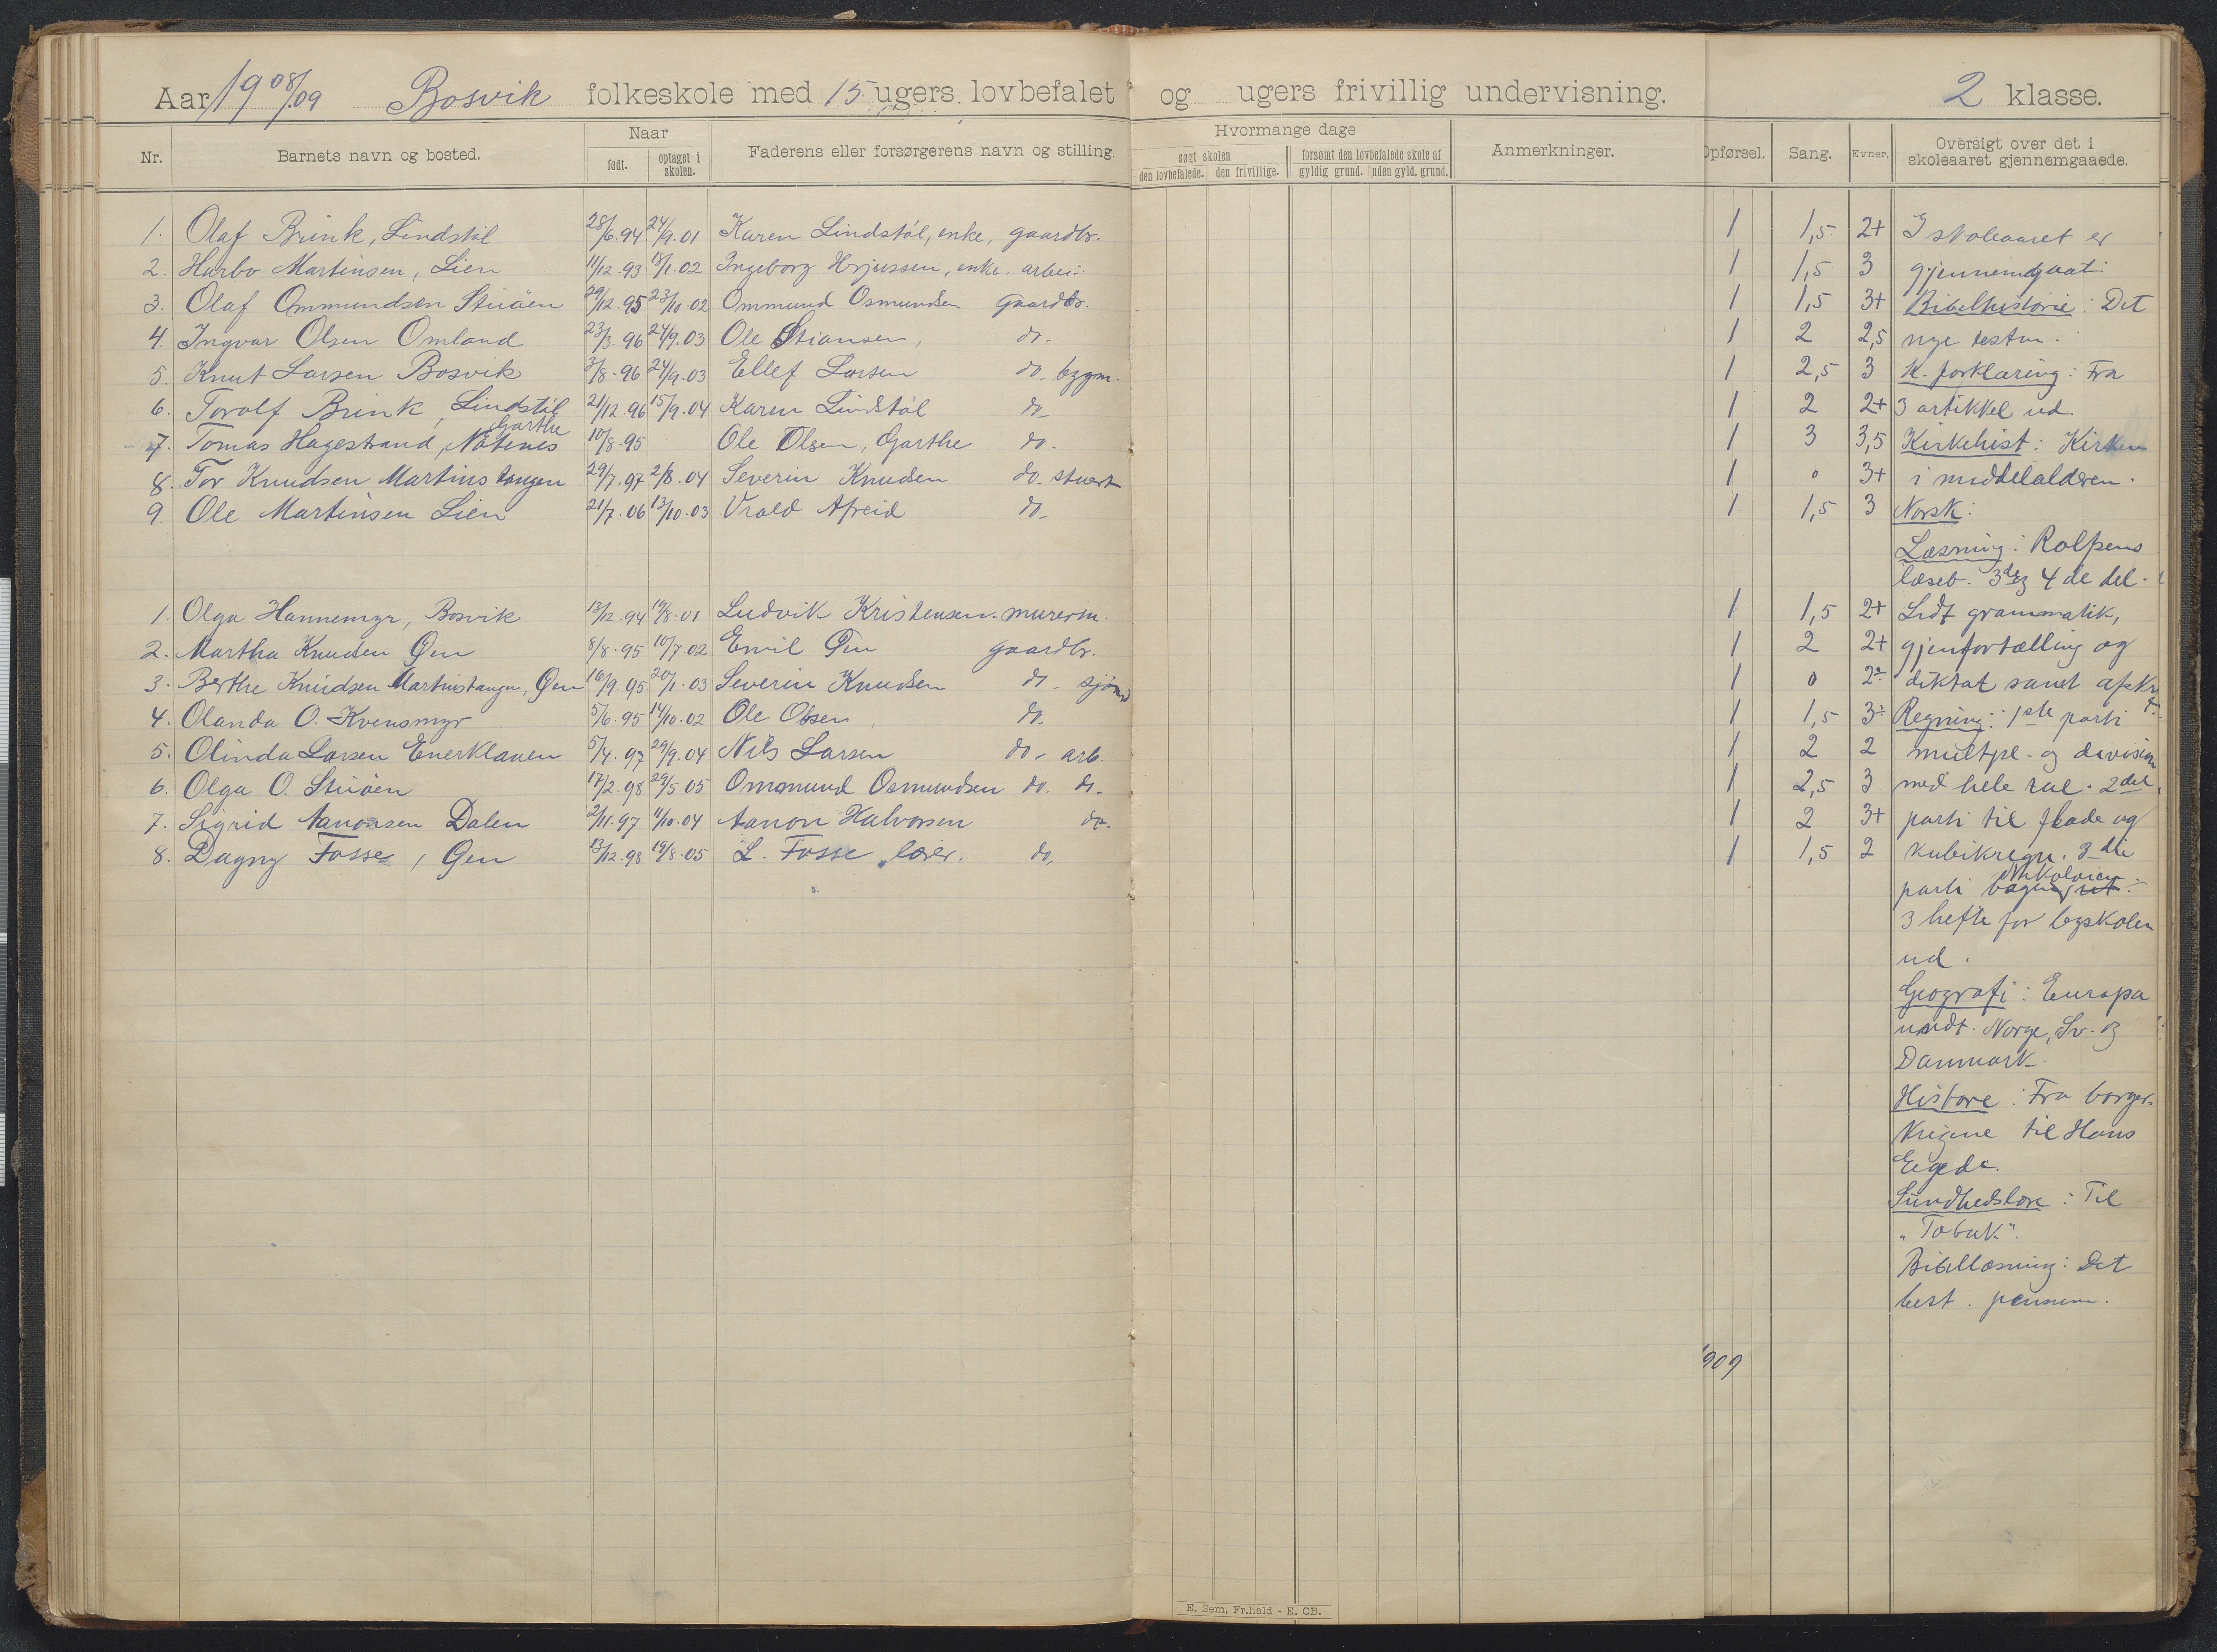 Aar 1908/09 Bosvik folkeskole med 15 ugers lovbefalet og ugers frivillig undervisning. 2 klasse.
Nr. Barnets navn og bosted. Naar født. optaget i skolen. Faderens eller forsørgerens navn og stilling. Hvormange dage søgt skolen den lovbefalede. den frivillige. forsømt den lovbefalede skole af gyldig grund. uden gyld. grund. Anmerkninger. Opførsel. Sang. Evner. Oversigt over det i skoleaaret gjennemgaaede.
1. Olaf Brink, Lindstøl 28/6.94 24/9.01 Karen Lindstøl, enke, gaardbr. 1 1,5 2+ I skoleaaret er
2. Harbo Martinsen, Lien 11/12.93 18/1.02 Ingeborg enke. 1 1,5 3 gjennemgaat:
3. Olaf Ommundsen Stuöen 29/12.95 23/10.02 Ommund Osmundsen gaardbr. 1 1,5 3+ Bibelhistorie: Det
4. Ingvar Olsen Omland 23/3.96 24/9.03 Ole Stiansen, do. 1 2 2,5 nye testm.
5. Knut Larsen Bosvik 3/8.96 24/9.03 Ellef Larsen do. bygm. 1 2,5 3 K. forklaring: Fra
6. Torolf Brink, Lindstöl 21/12.96 15/9.04 Karen Lindstøl do 1 2 2+ 3 artikkel ud.
Garthe
7. Tomas Hagestrand, 10/8.95 Ole Olsen, Garthe do. 1 3 3,5 Kirkehist: Kirken
8. Tor Knudsen Martinstangen 29/7.97 2/8.04 Severin Knudsen do. stuert 1 0 3+ i middelalderen.
9. Ole Martinsen Lien 21/7.06 13/10.03 do. 1 1,5 3 Norsk:
Læsning: Rolfsens
læseb. 3de og 4de del.
1. Olga Hannemyr, Bosvik 13/12.94 19/8.01 Ludvik Kristensen. murerm. 1 1,5 2+ Lidt grammatik,
2. Martha Knudsen Øen 8/8.95 10/7.02 Emil Øen gaardbr. 1 2 2+ gjenfortælling og
3. Berthe Knudsen Martinstangen, Øen 16/9.95 20/1.03 Severin Knudsen do. sjömd 1 0 2÷ diktat samt afskr
4. Olanda O. Kvensmyr 5/6.95 14/10.02 Ole Olsen do. 1 1,5 3÷ Regning: 1ste parti
5. Olinda Larsen Enerklauen 5/4.97 29/9.04 Nils Larsen do. arb. 1 2 2 multpl- og division
6. Olga O. Stuöen 17/2.98 29/5.05 Ommund Osmundsen do. do. 1 2,5 3 med hele tal. 2det
7. Sigrid Aanonsen Dalen 2/11.97 11/10.04 Aanon Halvorsen do. 1 2 3+ parti til flade og
8. Dagny Fosse, Øen 13/12.98 19/8.05 L. Fosse, lærer. do, 1 1,5 2 kubikregn. 3die
parti
3 hefte for byskolen
ud.
Geografi: Europa
undt. Norge, Sv. og
Danmark.
Historie: Fra borger-
krigene til Hans
Egede.
Sundhedslære: Til
"Tobak".
Bibellæsning: Det
best. pensum.
1909
E. Sem, Fr.hald - E. CB.